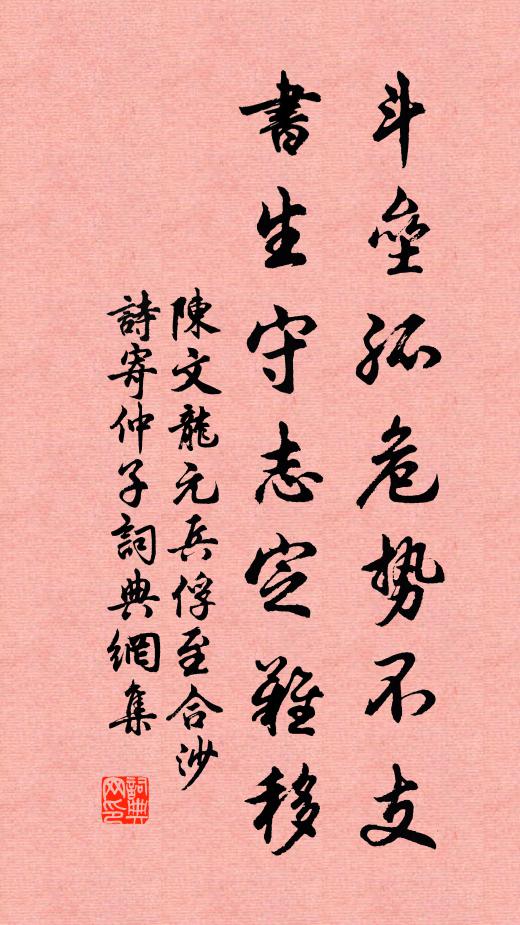 斗壘孤危勢不支
書生守志定難移
陳文龍元兵俘至合沙
詩寄仲子詞典網集
詞典网印